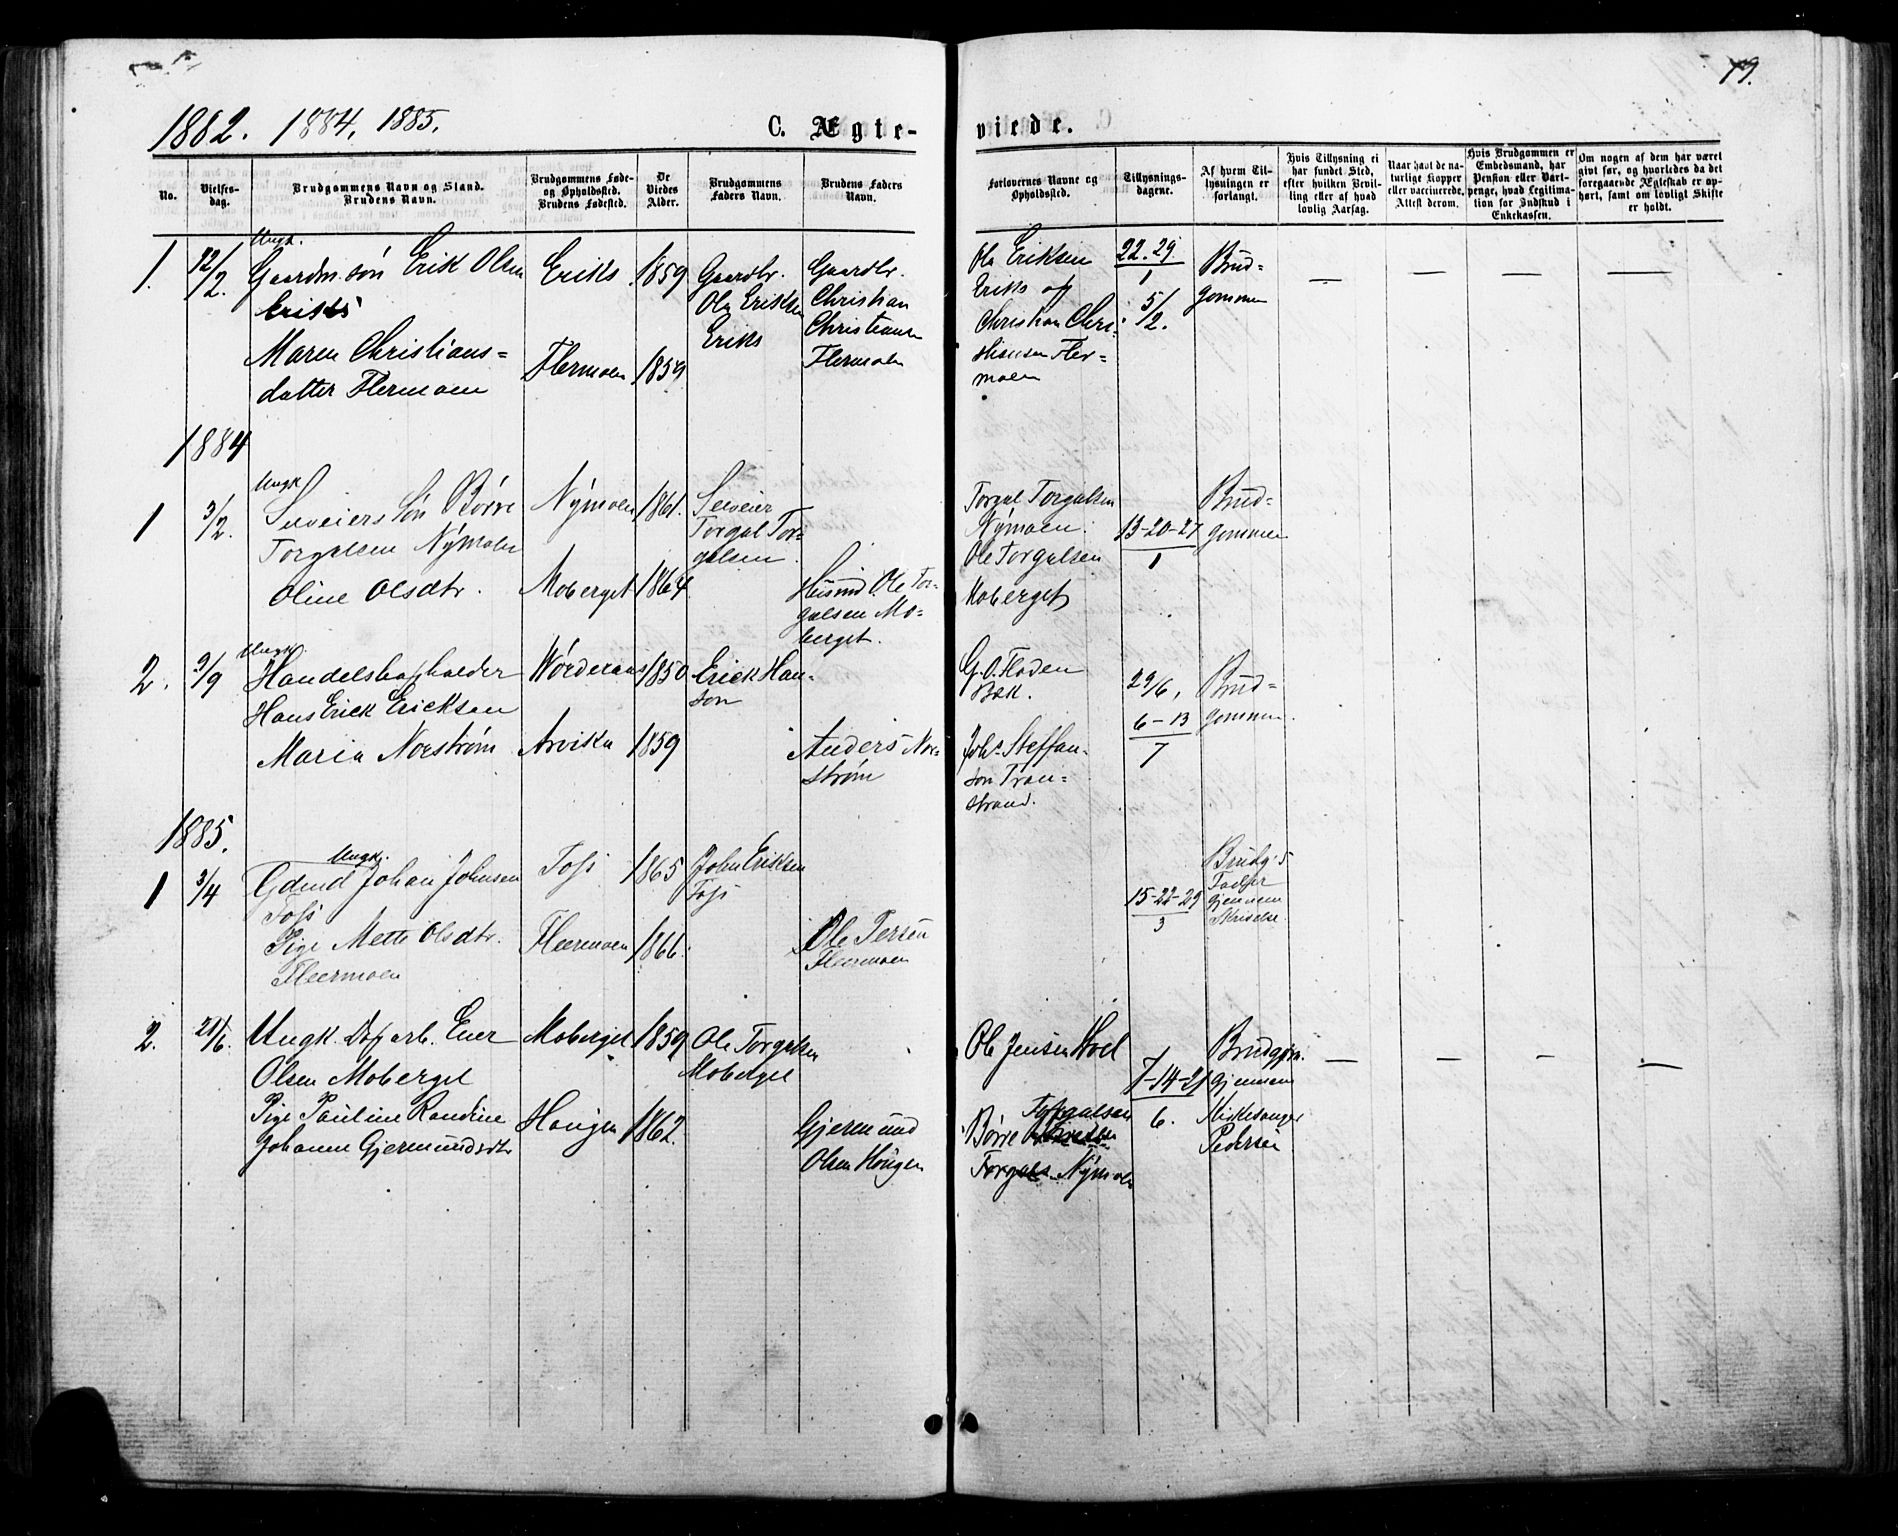 19.
1882. 1884, 1885.
C. Ægte-
viede.
No.
Vielses-
dag.
Brudgommens Navn og Stand.
Brudens Navn.
Brudgommens Føde-
og Opholdssted.
Brudens Fødested.
De
Viedes
Alder.
Brudgommens
Faders Navn.
Brudens Faders
Navn.
Forlovernes Navne og
Opholdssted.
Tillysnings-
dagene.
Af hvem Til-
lysningen er
forlangt.
Hvis Tillysning ei
har fundet Sted,
efter hvilken Bevil-
ling eller af hvad
lovlig Aarsag.
Naar havt de na-
turlige Kopper
eller vaccinerede,
Attest derom.
Hvis Brudgommen er
Embedsmand, har
Pension eller Vart-
penge, hvad Legitima-
tion for Indskud i
Enkekassen.
Om nogen af dem har været
gift før, og hvorledes da det
foregaaende Ægteskab er op-
hørt, samt om lovligt Skifte
er holdt.
1. 12/2.
Ungk.
Gaardm. søn Erik Olsen
Eriks
Maren Christians=
datter Flermoen
Eriks
Flermoen
1859
1859
Gaardbr.
Ola Eriksen
Eriks
Gaardbr.
Christian
Christiansen
Flermoen
Ola Eriksen
Eriks og
Christian Chri-
stiansen Fler=
moen
22. 29.
1
5/2.
Brud=
gommen
—
—
—
—
1884
1 3/2.
Ungk
Selveiers Søn Børre
Torgalsen Nýmoen
Oline Olsdtr.
Nýmoen
Moberget
1861.
1864
Selveier
Torgal Tor=
galsen
Husmd Ole Tor=
galsen Mo=
berget.
Torgal Torgalsen
Nýmoen.
Ole Torgalsen
Moberget
13-20-27
1
Brud=
gommen
2. 9/9
Ungk.
Hans Erick Ericksen
Maria Norstrøm
Arvika
1850
1859
Erick Han-
son
Anders Nor=
strøm
G. O. Floden
Bæk.
Johs. Steffan-
son Tran=
strand.
29/6,
6-13
7
Brud=
gommen.
1885.
1 3/4
Ungk.
Gdmd Johan Johnsen
Tofs
Pige Mette Olsdtr.
Fleermoen
Tofs
Fleermoen
1865
1866.
John Eriksen
Tofs
Ole Persen
Fleermoen
15-22-29
3
Brudg's
Fader
gjennem
Skrivelse.
2. 21/6.
Ungk. Dagarb. Ener
Olsen Moberget
Pige Pauline Randine
Johanne Gjermundsdtr
Moberget
Haugen
1859
1862.
Ole Torgalsen
Moberget
Gjermund
Olsen Haugen
Ole Jensen Moel
Børre Torgalsen
Torgals Nýmoen
7-14-21
6.
Brudgom.
gjennem
Kirkesanger
Pedersen
—
—
—
—